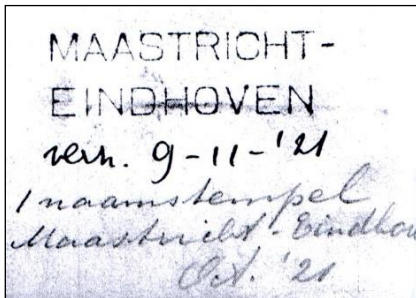 MAASTRICHT-
EINDHOVEN
verh. 9-11-'21
1 naamstempel
Maastricht-Eindhov
Oct. '21